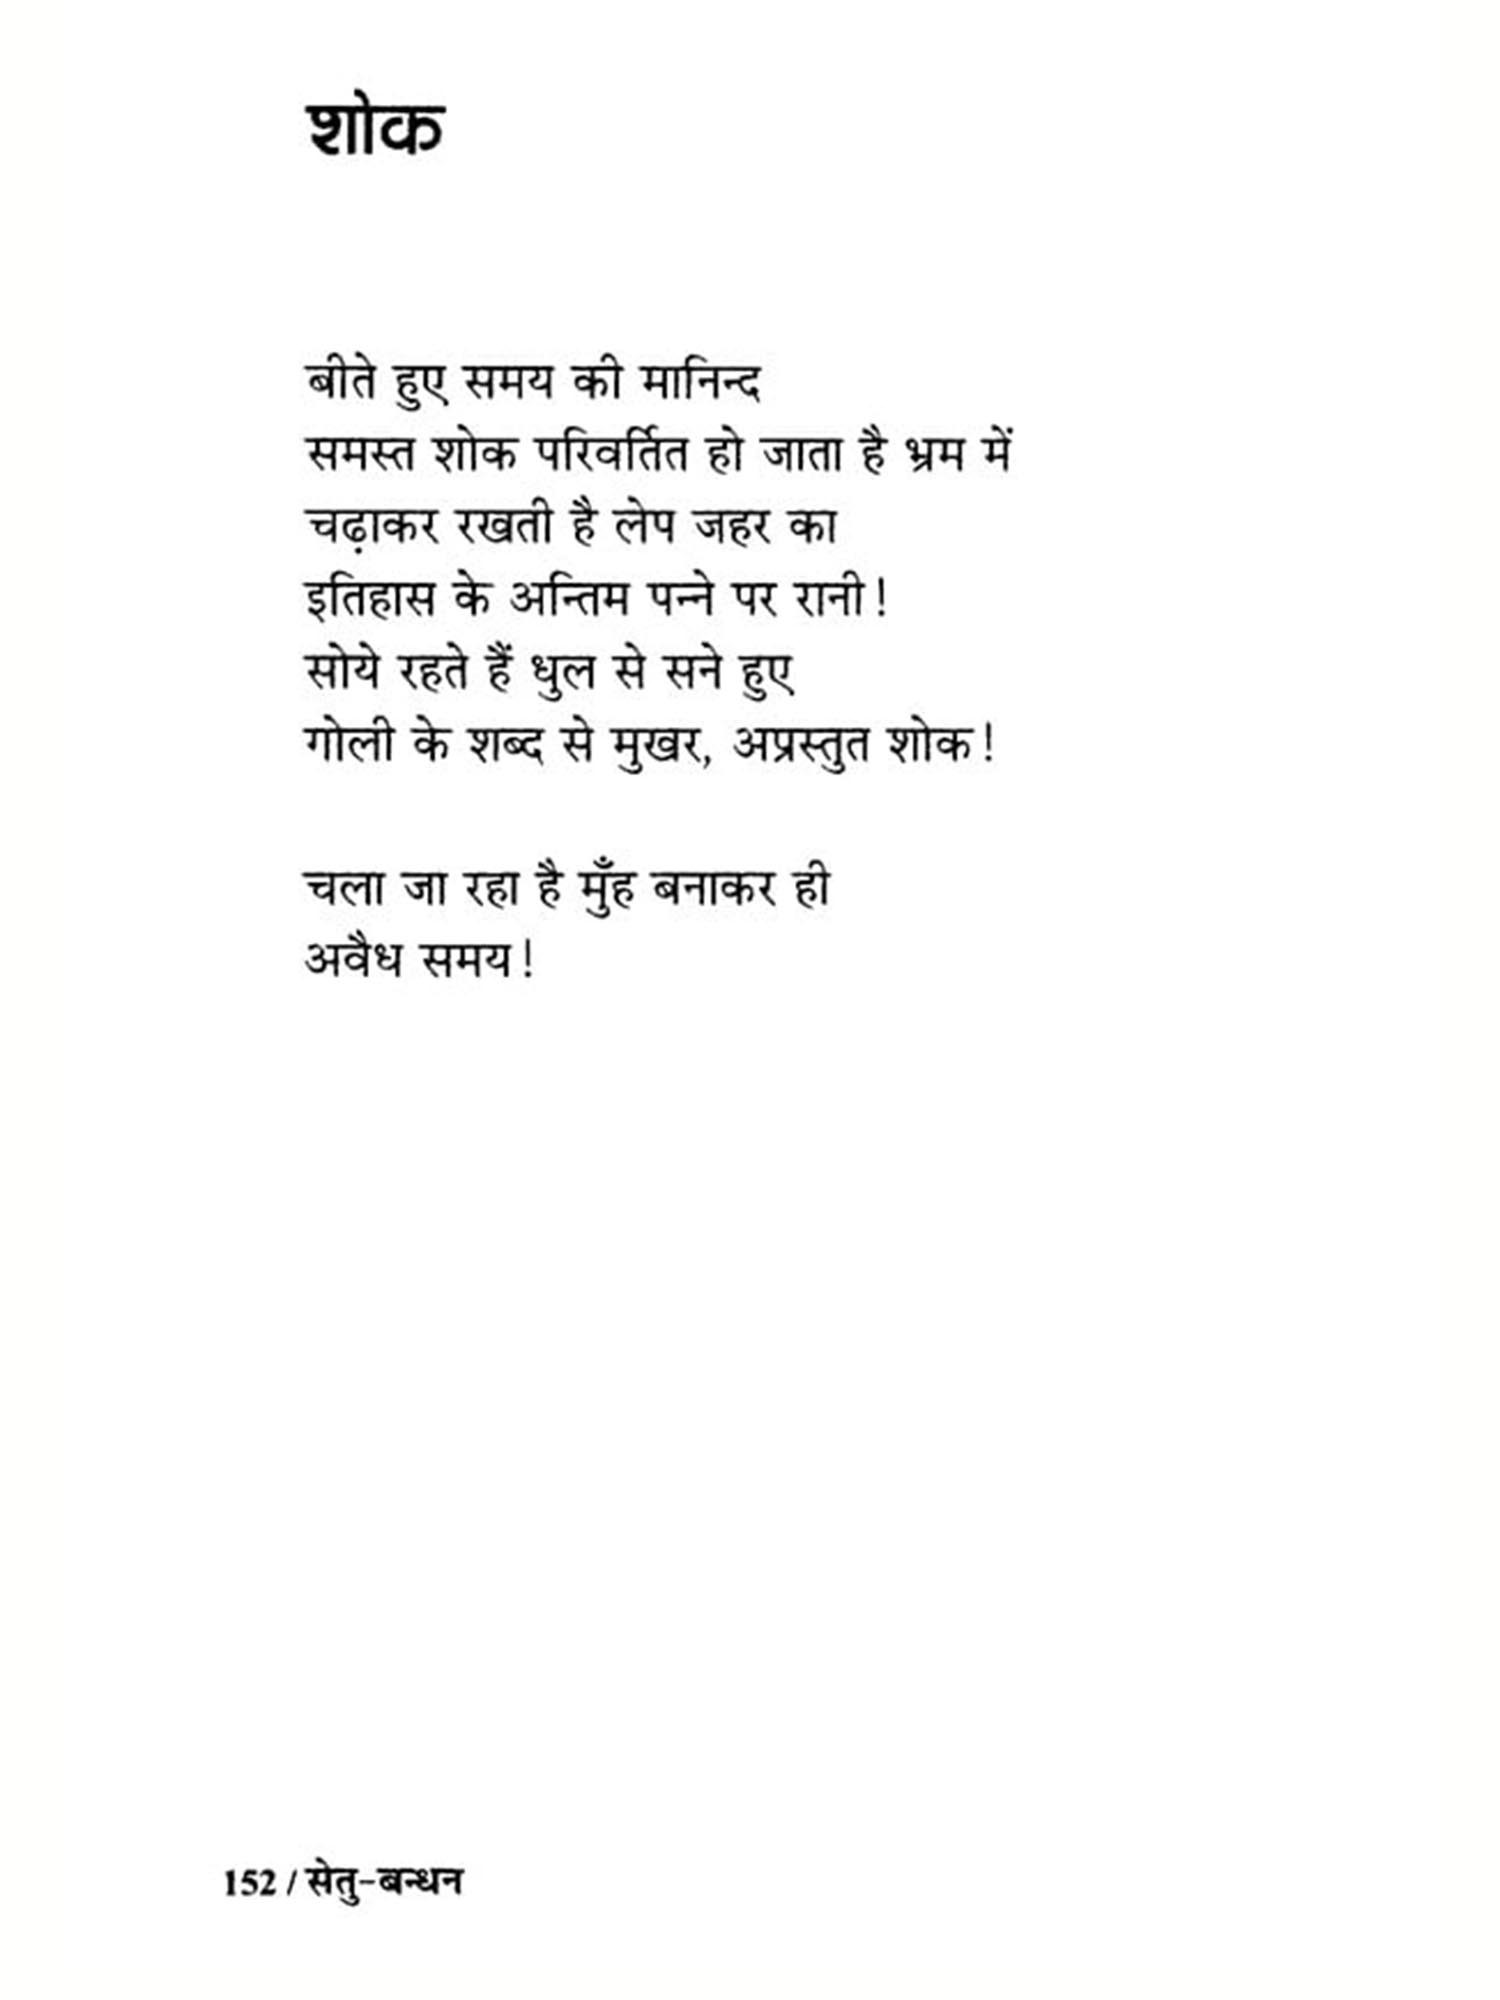 शोक
बीते हुए समय की मानिन्द
समस्त शोक परिवर्तित हो जाता है भ्रम में
चढ़ाकर रखती है लेप जहर का
इतिहास के अन्तिम पन्ने पर रानी!
सोये रहते हैं धुल से सने हुए
गोली के शब्द से मुखर, अप्रस्तुत शोक!
चला जा रहा है मुँह बनाकर ही
अवैध समय!
152 / सेतु-बन्धन